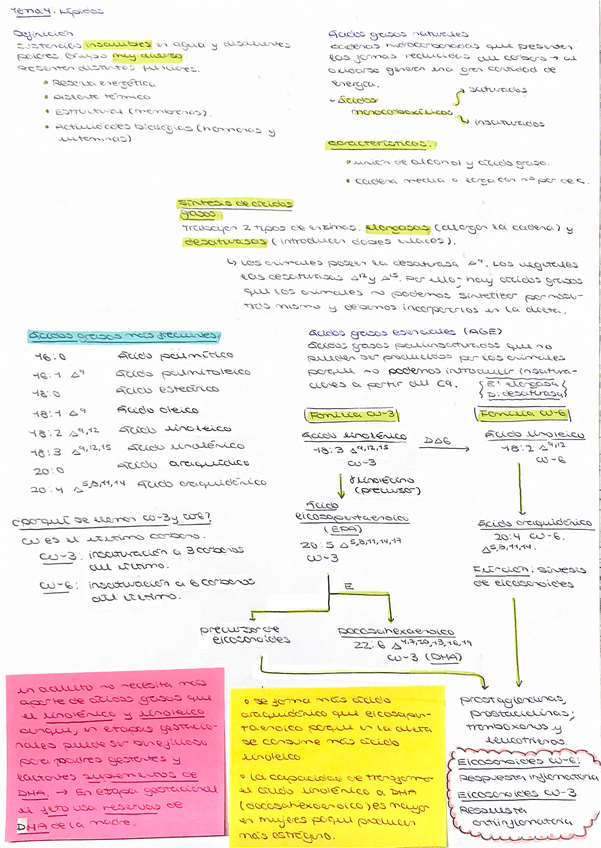 Tema 4. Lípidos
Definición
Sustancias insolubles en agua y disolventes
polares. Grupo muy diverso
Presentan distintas funciones.
• Reserva energética
• Aislante térmico
• Estructural (membranas).
• Actividades biológicas (hormonas y
vitaminas).
Ácidos grasos naturales
Cadenas hidrocarbonadas que presentan
las formas reducidas del carbono → al
oxidarse generan una gran cantidad de
energía.
- Ácidos
monocarboxílicos
saturados
insaturados
Características.
• unión de alcohol y ácido graso.
• cadena media o larga con nº par de c.
Síntesis de ácidos
grasos.
Trabajan 2 tipos de enzimas: elongasas (alargar la cadena) y
desaturasas (introducen dobles enlaces).
↳ los animales poseen la desaturasa Δ9. Los vegetales
las desaturasas Δ12 y Δ15. Por ello hay ácidos grasos
que los animales no podemos sintetizar por noso-
tros mismo y debemos incorporarlos en la dieta.
Ácidos grasos más frecuentes
16:0 Ácido palmítico
16:1 Δ9 Ácido palmitoleico
18:0 Ácido esteárico
18:1 Δ9 Ácido oleico
18:2 Δ9,12 Ácido linoleico
18:3 Δ9,12,15 Ácido linolénico
20:0 Ácido araquídico
20:4 Δ5,8,11,14 Ácido araquidónico
¿Por qué se llaman ω-3 y ω6?
ω es el último carbono.
ω-3: insaturación a 3 carbonos
del último.
ω-6: insaturación a 6 carbonos
del último.
Ácidos grasos esenciales (AGE)
Ácidos grasos poliinsaturados que no
pueden ser producidos por los animales
porque no podemos introducir insatura-
ciones a partir del C9.
E: elongasa
D: desaturasa
Familia ω-3
Ácido linolénico
18:3 Δ9,12,15
ω-3
DΔ6
Familia ω-6
Ácido linoleico
18:2 Δ9,12
ω-6
(precursor)
Ácido
eicosapentaenoico
(EPA)
20:5 Δ5,8,11,14,17
ω-3
Ácido araquidónico
20:4 ω-6.
Δ5,8,11,14.
Función: síntesis
de eicosanoides
E
precursor de
eicosanoides
Docosahexaenoico
22:6 Δ4,7,10,13,16,19
ω-3 (DHA)
prostaglandinas,
prostaciclinas,
tromboxanos y
leucotrienos.
Eicosanoides ω-6:
Respuesta inflamatoria
Eicosanoides ω-3
Respuesta
antiinflamatoria
Un adulto no necesita más
aporte de ácidos grasos que
el linolénico y linoleico
aunque, en etapas gestacio-
nales puede ser beneficioso
para madres gestantes y
lactantes suplementos de
DHA. → En etapa gestacional
el feto usa reservas de
DHA de la madre.
• Se forma más ácido
araquidónico que eicosapen-
taenoico porque en la dieta
se consume más ácido
linoleico.
• La capacidad de transformar
el ácido linolénico a DHA
(docosahexaenoico) es mayor
en mujeres porque producen
más estrógeno.